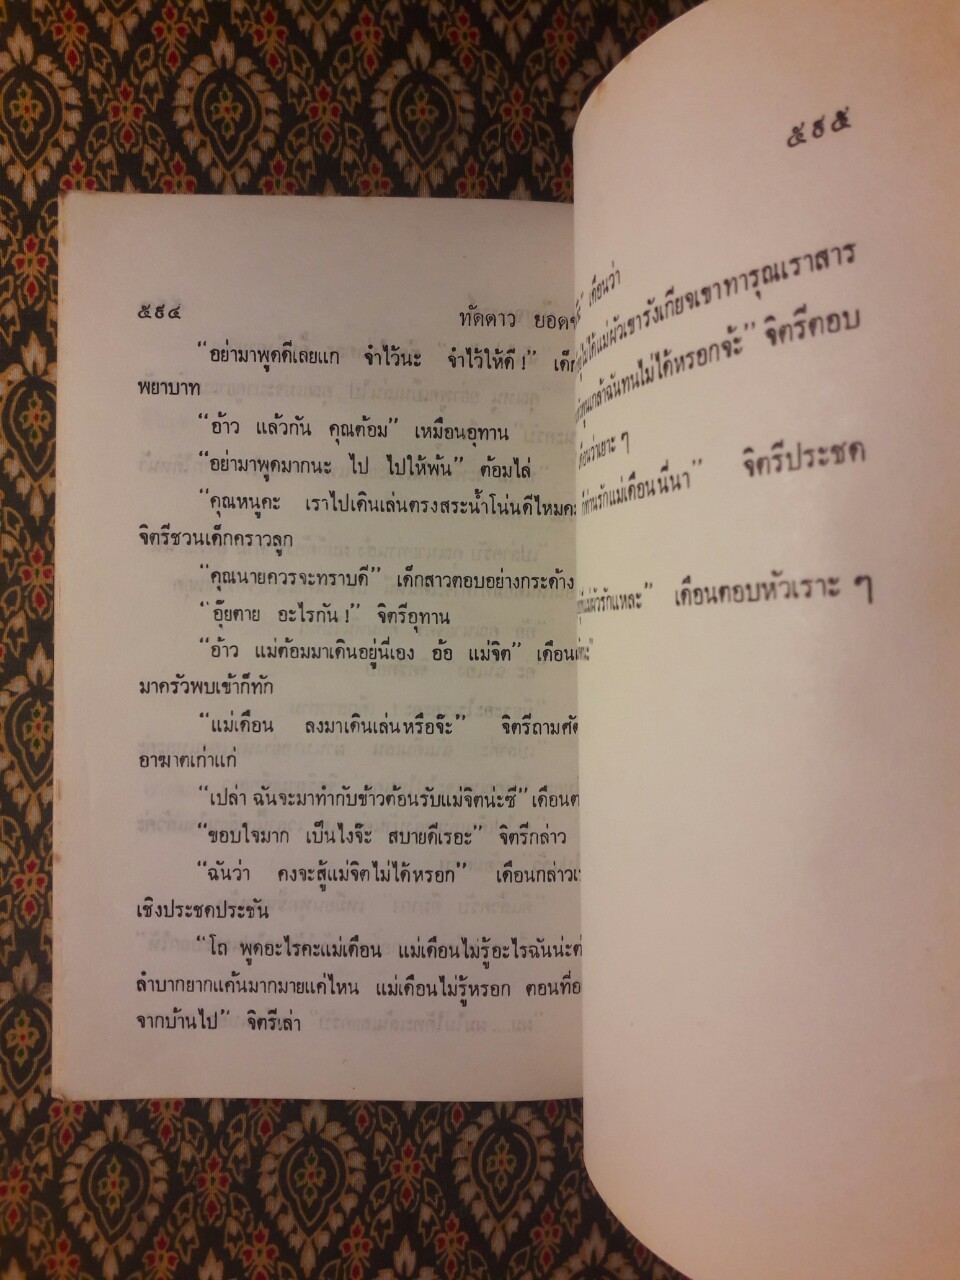 ๕๙๔
ทัดดาว ยอด
“อย่ามาพูดดีเลยแก จำไว้นะ จำไว้ให้ดี!”
พยาบาท
“อ้าว แล้วกัน คุณต้อม” เหมือนอุทาน
“อย่ามาพูดมากนะ ไป ไปให้พ้น” ต้อมไล่
“คุณหนูคะ เราไปเดินเล่นตรงสระน้ำโน่นดีไหมคะ
จิตรีชวนเด็กคราวลูก
“คุณนายควรจะทราบดี” เด็กสาวตอบอย่างกระด้าง
“อุ๊ยตาย อะไรกัน!” จิตรีอุทาน
“อ้าว แม่ต้อมมาเดินอยู่นี่เอง อ้อ แม่จิต”
มาครัวพบเข้าก็ทัก
“แม่เดือน ลงมาเดินเล่นหรือจ๊ะ” จิตรีถาม
อาฆาตเก่าแก่
“เปล่า ฉันจะมาทำกับข้าวต้อนรับแม่จิตน่ะซี”
“ขอบใจมาก เป็นไงจ๊ะ สบายดีเรอะ” จิตรีกล่าว
“ฉันว่า คงจะสู้แม่จิตไม่ได้หรอก” เดือนกล่าว
เชิงประชดประชัน
“โถ พูดอะไรคะแม่เดือน แม่เดือนไม่รู้อะไรฉันน่ะ
ลำบากยากแค้นมากมายแค่ไหน แม่เดือนไม่รู้หรอก ตอนที่
จากบ้านไป” จิตรีเล่า
๕๙๕
เดือนว่า
ไม่ได้แม่ผัวเขารังเกียจเขาทารุณเราสาร
ฉันทนไม่ได้หรอกจ้ะ” จิตรีตอบ
เดือนว่าเยาะ ๆ
ท่านรักแม่เดือนนี่นา” จิตรีประชด
แม่ผัวรักแหละ” เดือนตอบหัวเราะ ๆ